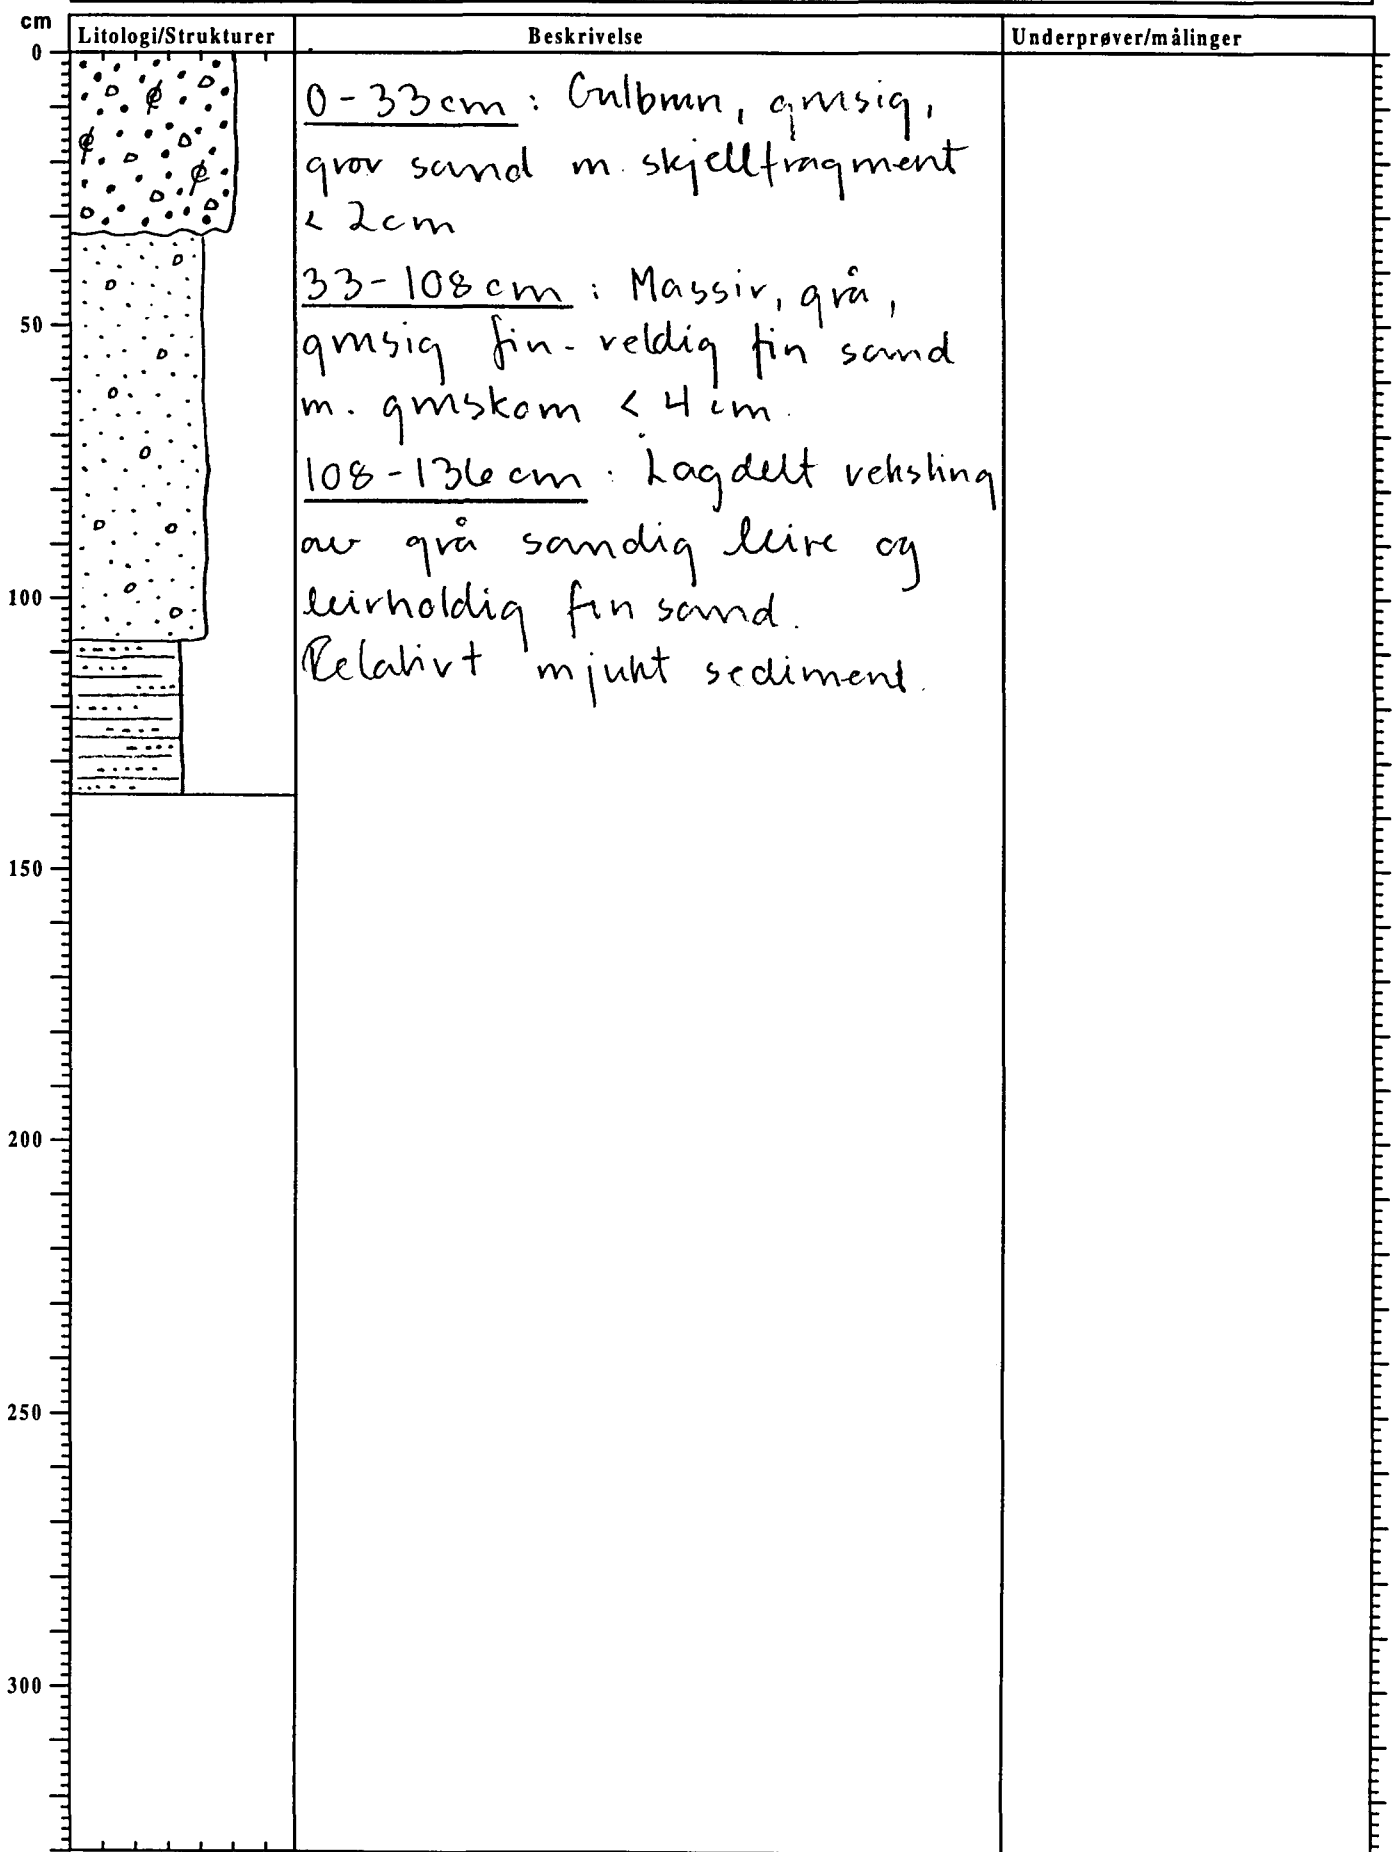 cm
Litologi/Strukturer Beskrivelse Underprøver/målinger
0
0-33 cm : Gulbrun, grusig,
grov sand m. skjellfragment
< 2cm
33-108 cm : Massiv, grå,
50
grusig fin-veldig fin sand
m. gruskorn < 4 cm.
108-136 cm : Lagdelt veksling
av grå sandig leire og
100
leirholdig fin sand.
Relativt mjukt sediment.
150
200
250
300